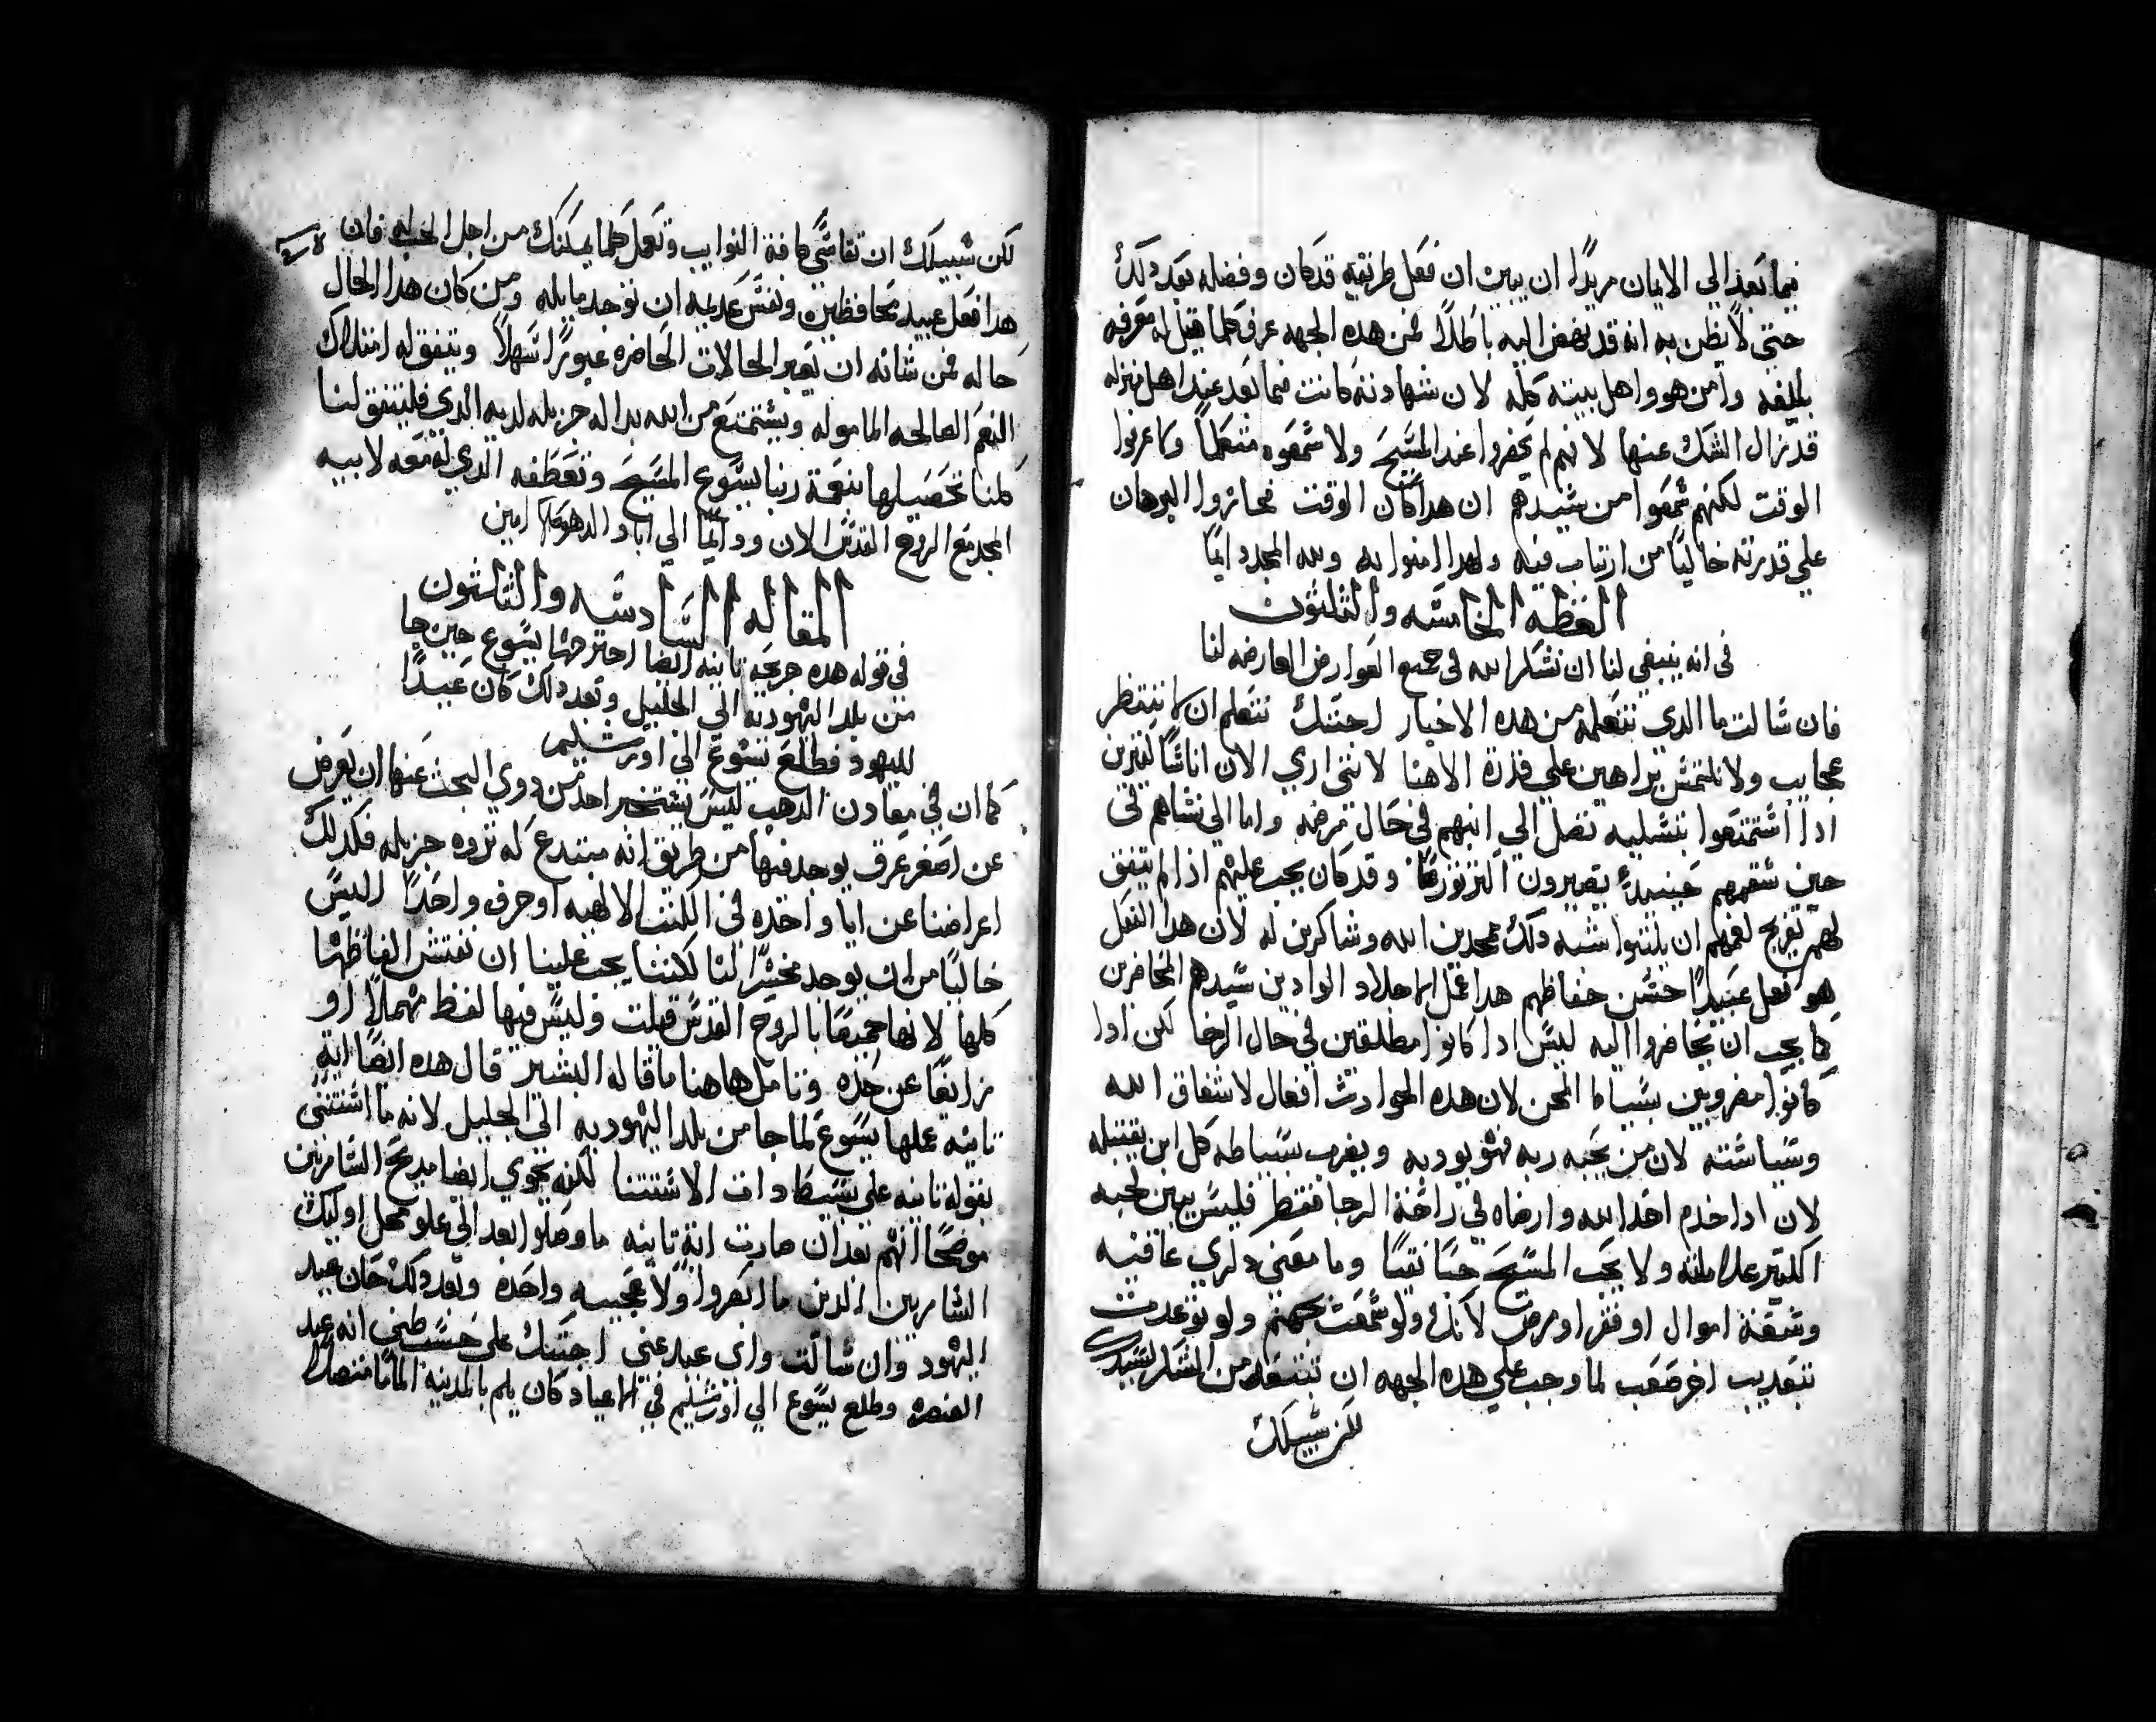 فيما بعد الي الايمان مريدًا ان يبين ان فعل طريقته قد كان وفضله بعد دلك
حتي لا يظن به انه قد نهض اليه باطلاً فمن هده الجهه عرف كلما قيل له معرفه
بليغه وامن هو واهل بيته كله لان شهادته كانت فيما بعد عند اهل منزله
قد زال الشك عنها لانهم لم يحضروا عند المسيح ولا سمعوه متكلماً وما عرفوا
الوقت لكنهم سمعوا من سيدهم ان هدا كان الوقت فحازوا البرهان
علي قدرته خاليًا من ارتياب فيه ولهدا امنوا به ولله المجد دايمًا
العظه الخامسه والثلثون
في انه ينبغي لنا ان نشكر الله في جميع العوارض العارضه لنا
فان سالت ما الدي نتعلمه من هده الاخبار اجبتك نتعلم ان لا ننتظر
عجايب ولا نلتمس براهين علي قدرة الاهنا لانني اري الان اناسًا كثيرين
ادا استمتعوا بتسليه تصل الي ابنهم في حال مرضه واما الي نساهم في
حين سقمهم حينيدٍ يصيرون اكثر تورعًا وقد كان يجب عليهم اذا لم يتفق
لهم تفريج لغمهم ان يلبثوا شبه دلك ممجدين الله وشاكرين له لان هدا الفعل
هو فعل عبيدًا حسن حفاظهم هدا عمل الاجلاد الوادين سيدهم الحاضرين
كما يجب ان يحاضروا اليه ليس ادا كانوا مطلقين في حال الرخا لكن ادا
كانوا مضروبين بسياط المحن لان هده الحوادث افعال لاشفاق الله
وسياسته لان من يحبه ربه فهو يودبه ويضرب بسياطه كل ابن يقتبله
لان ادا خدم احد الله وارضاه في راحة الرخا فقط فليس يبين لحبه
اكثير علامانه ولا يحب المسيح حبًا نقيًا وما معني دكري عافيه
وسعة اموال او فقر او مرض لانك ولو سمعت بجهنم ولو توعدت
بتعديب اخر صعب لما وجب علي هده الجهه ان تنتقل من الشكر لسيدك
لكن سبيلك
لكن سبيلك ان تقاسي كافة النوايب وتعمل كلما يمكنك من اجل الحب له فان
هدا فعل عبيد محافظين ونفس عديمه ان توجد مايله ومن كان هدا الحال
حاله فمن شانه ان يعبر الحالات الحاضره عبورًا سهلاً ويتفق له امتلاك
النعم الصالحه المامولة ويستمتع من الله بداله جزيله لديه الدي فليتفق لنا
كلنا تحصيلها بنعمة ربنا يسوع المسيح وتعطفه الدي له معه لابيه
المجد مع الروح القدس الان ودايمًا الي اباد الدهور امين
المقاله السادسه والثلثون
في قوله هده جريحه تانيه ايضا اجترحها يسوع حين جا
من بلد اليهوديه الي الجليل وبعد دلك كان عيدًا
لليهود فطلع يسوع الي اورشليم
كما ان في معادن الدهب ليس يستخير احد من دوي البحث عنها ان يعرض
عن اصغر عرق يوجد فيها من طريق انه مبتدع له ثروه جزيله فكدلك
اعراضنا عن ايا واحده في الكتب الالهيه او حرف واحدًا ليس
خاليًا من ان يوجد مخسرًا لنا لكننا يجب علينا ان نفتش الفاظها
كلها لانها جميعًا بالروح القدس قيلت وليس فيها لفظ مهملاً او
زايغًا عن حده وتامل هاهنا ما قاله البشير قال هده ايضًا اية
تانيه عملها يسوع لما جا من بلد اليهوديه الي الجليل لانه ما استثني
بقوله تانيه علي بسيط دات الاستتنا لكنه يحوي ايضا مديح السامريين
موضحًا انهم بعد ان صارت اية تانيه ما وصلوا بعد الي علو محل اوليك
السامريين الدين ما ابصروا ولا عجيبه واحدة وبعد دلك حان عيد
اليهود وان سالت واي عيد عني اجبتك علي حسب ظني انه عيد
العنصره وطلع يسوع الي اورشليم في الاعياد كان يلم بالمدينة المامًا متصلاً